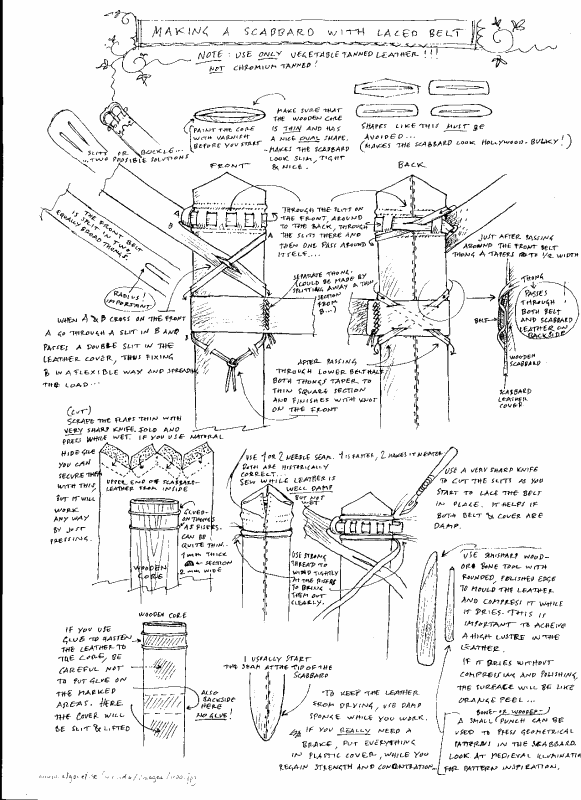 MAKING A SCABBARD WITH LACED BELT
NOTE: USE ONLY VEGETABLE TANNED LEATHER!!!
NOT CHROMIUM TANNED!
SLITS OR BUCKLE...
...TWO POSSIBLE SOLUTIONS
PAINT THE CORE
WITH VARNISH
BEFORE YOU START
MAKE SURE THAT
THE WOODEN CORE
IS THIN AND HAS
A NICE OVAL SHAPE.
-MAKES THE SCABBARD
LOOK SLIM, TIGHT
& NICE.
SHAPES LIKE THIS MUST BE
AVOIDED...
(MAKES THE SCABBARD LOOK HOLLYWOOD-BULKY!)
FRONT
BACK
THE FRONT BELT
IS SPLIT IN TWO
EQUALLY BROAD THONGS.
RADIUS!
IMPORTANT
A
B
A
B
THROUGH THE SLITS ON
THE FRONT, AROUND
TO THE BACK, THROUGH
THE SLITS THERE AND
THEN ONE PASS AROUND
ITSELF...
JUST AFTER PASSING
AROUND THE FRONT BELT
THONG A TAPERS TO 1/2 WIDTH
SEPARATE THONG,
(COULD BE MADE BY
SPLITTING AWAY A THIN
SECTION
FROM
B...)
THONG
PASSES
THROUGH
BOTH BELT
AND SCABBARD
LEATHER ON
BACKSIDE
BELT
WOODEN
SCABBARD
SCABBARD
LEATHER
COVER
WHEN A & B CROSS ON THE FRONT
A GO THROUGH A SLIT IN B AND
PASSES A DOUBLE SLIT IN THE
LEATHER COVER, THUS FIXING
B IN A FLEXIBLE WAY AND SPREADING
THE LOAD...
AFTER PASSING
THROUGH LOWER BELTHALF
BOTH THONGS TAPER TO
THIN SQUARE SECTION
AND FINISHES WITH KNOT
ON THE FRONT
(CUT)
SCRAPE THE FLAPS THIN WITH
VERY SHARP KNIFE. FOLD AND
PRESS WHILE WET. IF YOU USE NATURAL
HIDE GLUE
YOU CAN
SECURE THEM
WITH THIS,
BUT IT WILL
WORK
ANY WAY
BY JUST
PRESSING.
UPPER END OF SCABBARD-
LEATHER FROM INSIDE
WOODEN
CORE
GLUED-
ON THONGS
AS RISERS.
CAN BE
QUITE THIN...
1 MM THICK
SECTION
2 MM WIDE
USE 1 OR 2 NEEDLE SEAM. 1 IS FASTER, 2 MAKES IT NEATER.
BOTH ARE HISTORICALLY
CORRECT...
SEW WHILE LEATHER IS
WELL DAMP
BUT NOT
WET
USE STRONG
THREAD TO
WIND TIGHTLY
AT THE RISERS
TO BRING
THEM OUT
CLEARLY.
USE A VERY SHARP KNIFE
TO CUT THE SLITS AS YOU
START TO LACE THE BELT
IN PLACE. IT HELPS IF
BOTH BELT & COVER ARE
DAMP.
USE AN SHARP WOOD-
OR BONE TOOL WITH
ROUNDED, POLISHED EDGE
TO MOULD THE LEATHER
AND COMPRESS IT WHILE
IT DRIES. THIS IS
IMPORTANT TO ACHEIVE
A HIGH LUSTRE IN THE
LEATHER.
IF IT DRIES WITHOUT
COMPRESSING AND POLISHING,
THE SURFACE WILL BE LIKE
ORANGE PEEL...
BONE- OR WOODEN-
A SMALL PUNCH CAN BE
USED TO PRESS GEOMETRICAL
PATTERNS IN THE SCABBARD.
LOOK AT MEDIEVAL ILLUMINATI
FOR PATTERN INSPIRATION.
WOODEN CORE
IF YOU USE
GLUE TO FASTEN
THE LEATHER TO
THE CORE, BE
CAREFUL NOT
TO PUT GLUE ON
THE MARKED
AREAS. HERE
THE COVER WILL
BE SLIT & LIFTED
ALSO
BACKSIDE
HERE
NO GLUE!
I USUALLY START
THE SEAM AT THE TIP OF THE
SCABBARD
TO KEEP THE LEATHER
FROM DRYING, USE DAMP
SPONGE WHILE YOU WORK.
IF YOU REALLY NEED A
BRAKE, PUT EVERYTHING
IN PLASTIC COVER, WHILE YOU
REGAIN STRENGTH AND CONCENTRATION...